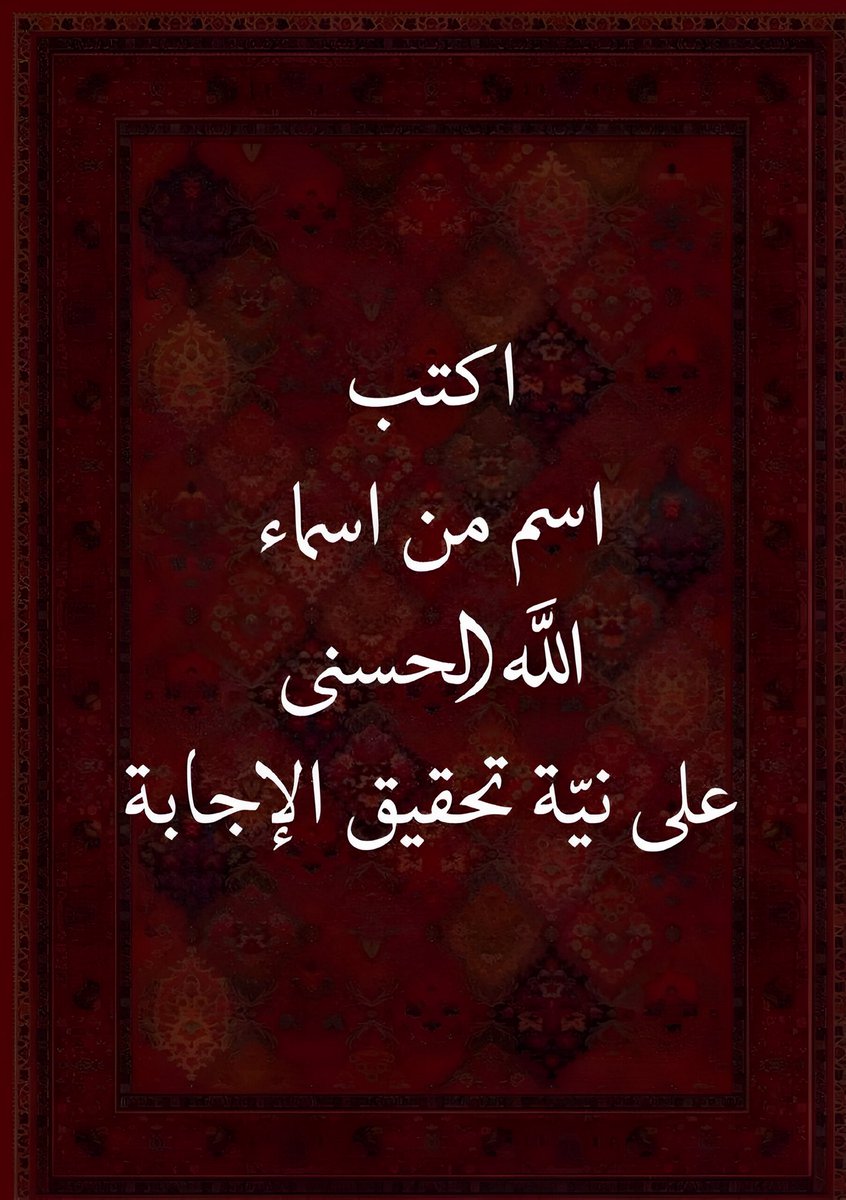 اكتب
اسم من اسماء
اللَّه الحسنى
على نيّة تحقيق الإجابة